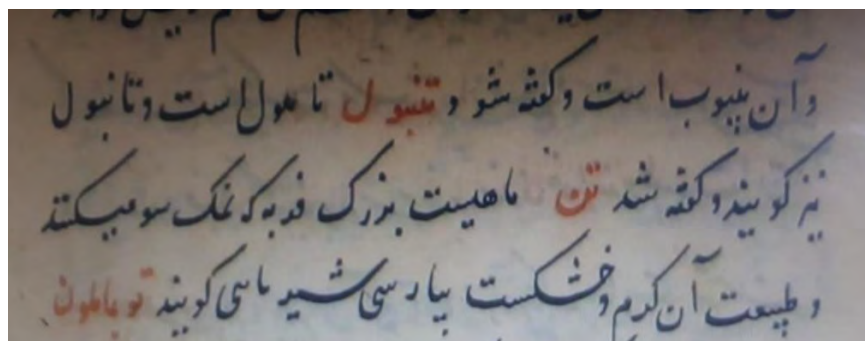 وآن پنبوب است وگفته شود تنبول تاملول است وتانبول
نیز گویند وگفته شد تن ماهیست بزرگ فربه که نمک سو میکنند
وطبیعت آن گرم وخشکست بپارسی شیر ماسی گویند توباملون